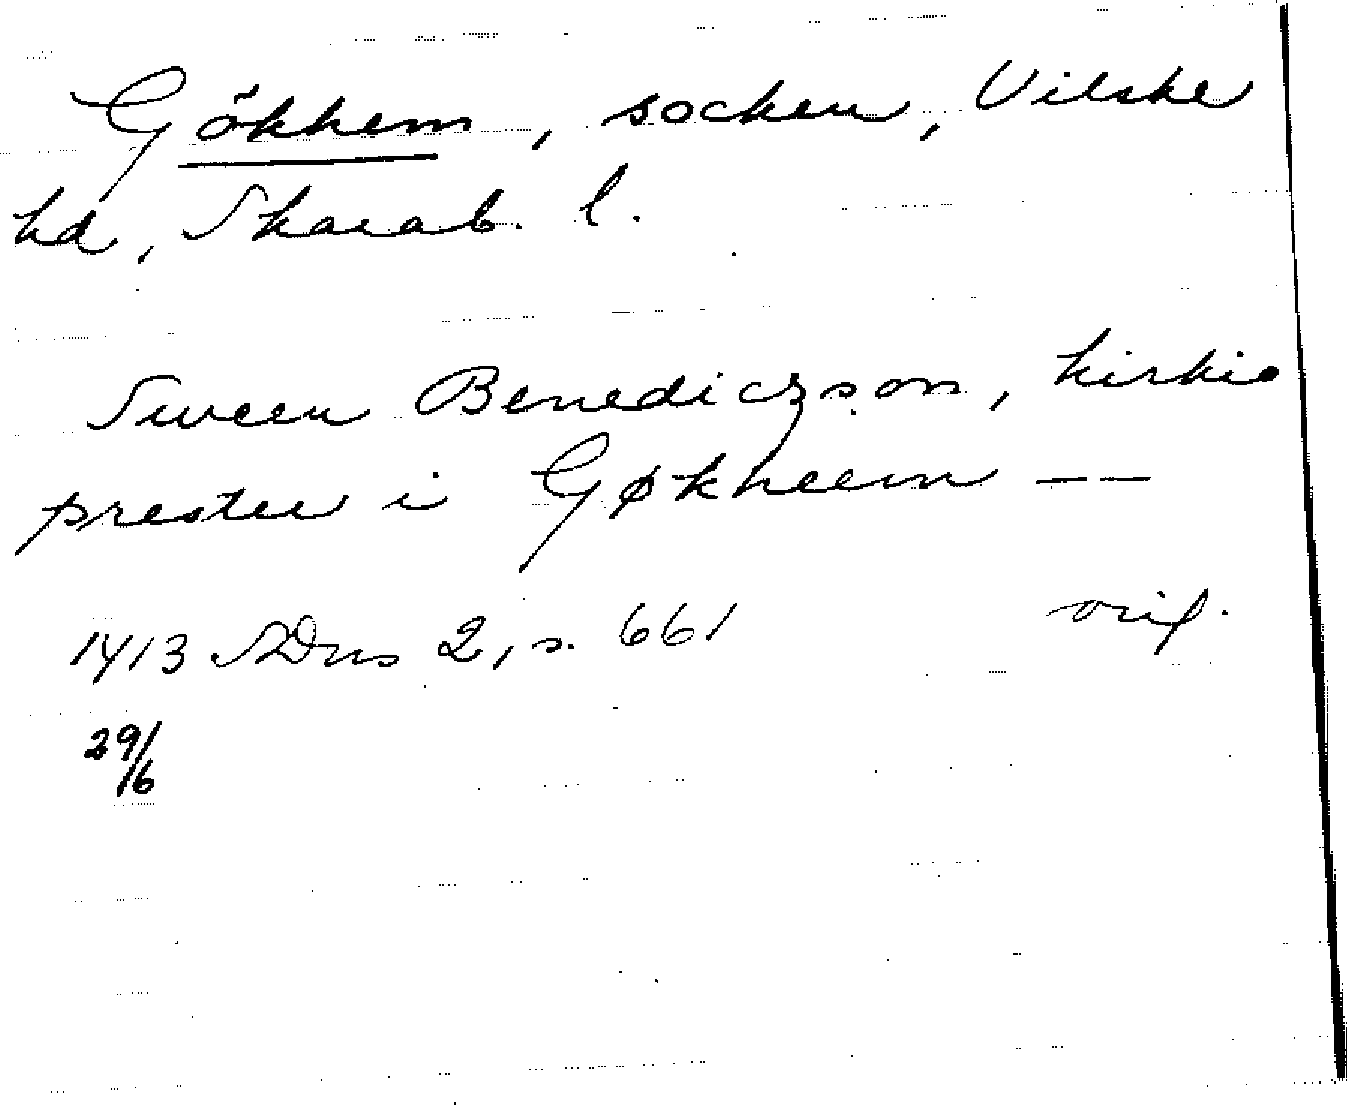 Gökhem, socken, Vilske
hd, Skarab. l.
Sween Benediczson, kirkio
prester i Gøkheem --
1413 SDns 2, s. 661 orig.
29/6